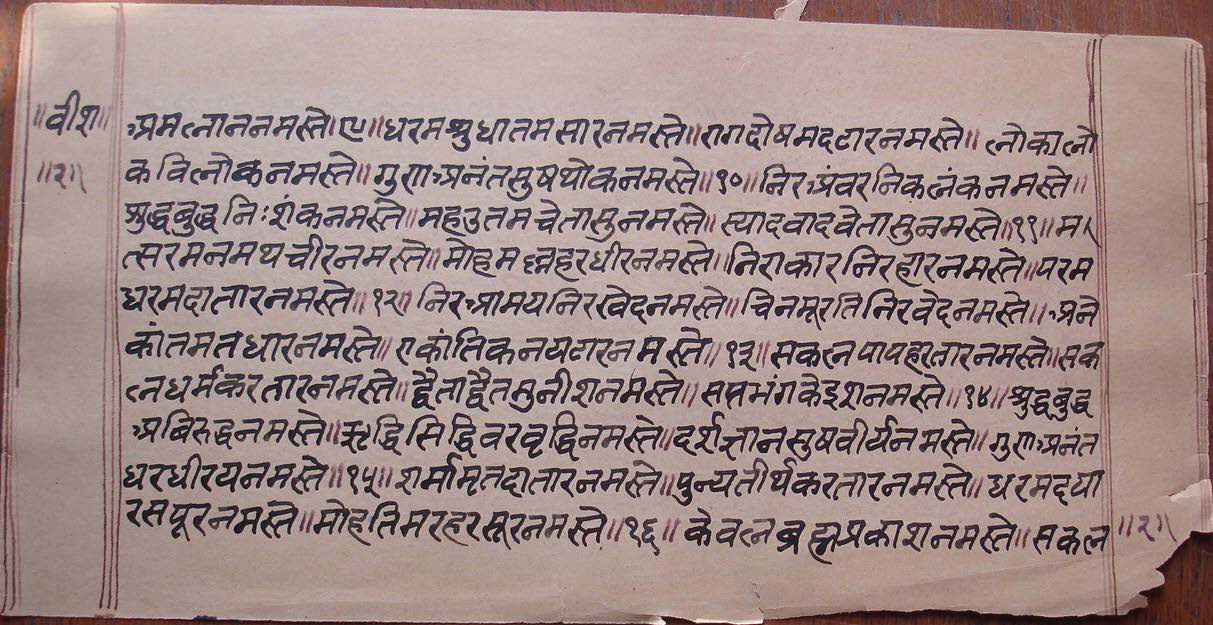 ॥वीश॥
॥२॥
अमलाननमस्ते॥९॥धरमशुधातमसारनमस्ते॥रागदोषमदटारनमस्ते॥लोकालो
कविलोकनमस्ते॥गुणअनंतसुषथोकनमस्ते॥१०॥निरअंवरनिकलंकनमस्ते॥
शुद्धबुद्धनिःशंकनमस्ते॥महउतमचेतासुनमस्ते॥स्यादवादवेतासुनमस्ते॥११॥म
त्सरमनमथचीरनमस्ते॥मोहमल्लहरधीरनमस्ते॥निराकारनिरहारनमस्ते॥परम
धरमदातारनमस्ते॥१२॥निरआमयनिरखेदनमस्ते॥चिनमूरतिनिरवेदनमस्ते॥अने
कांतमतधारनमस्ते॥एकांतिकनयटारनमस्ते॥१३॥सकलपापहरतारनमस्ते॥सक
लधर्मकरतारनमस्ते॥द्वैताद्वैतमुनीशनमस्ते॥सप्तभंगकेइशनमस्ते॥१४॥शुद्धबुद्ध
अबिरुद्धनमस्ते॥ऋद्धिसिद्धिवरवृद्धिनमस्ते॥दर्शज्ञानसुषवीर्यनमस्ते॥गुणअनंत
धरधीरयनमस्ते॥१५॥शर्मामृतदातारनमस्ते॥पुन्यतीर्थकरतारनमस्ते॥धरमदया
रसपूरनमस्ते॥मोहतिमरहरसूरनमस्ते॥१६॥केवलब्रह्मप्रकाशनमस्ते॥सकल
॥२॥